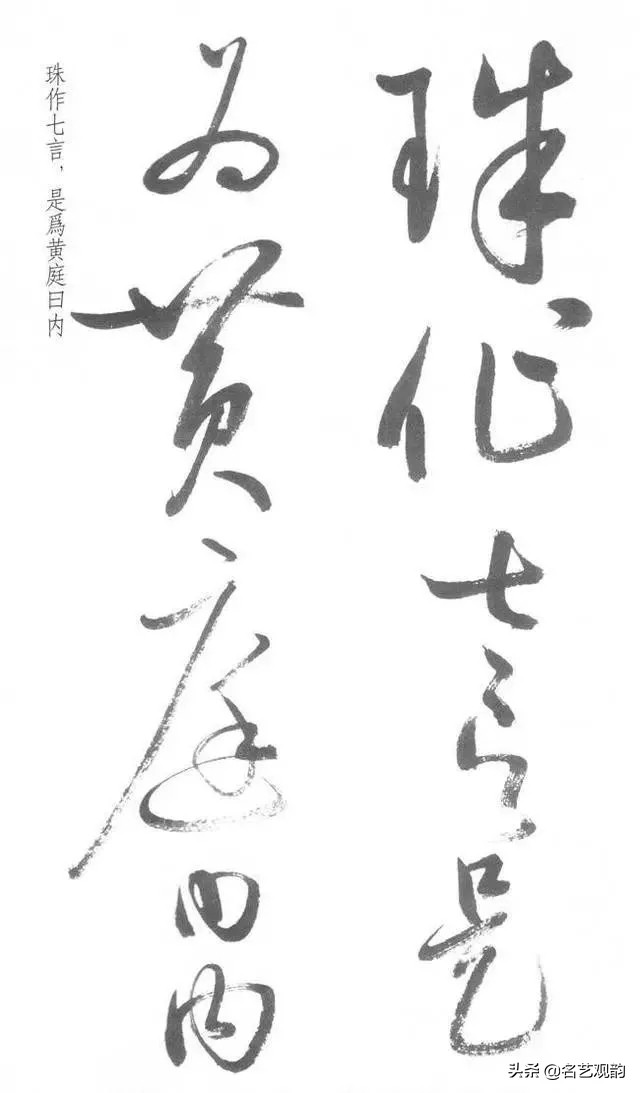 珠作七言是
为黄庭曰内
珠作七言，是爲黄庭曰内
头条 @名艺观韵